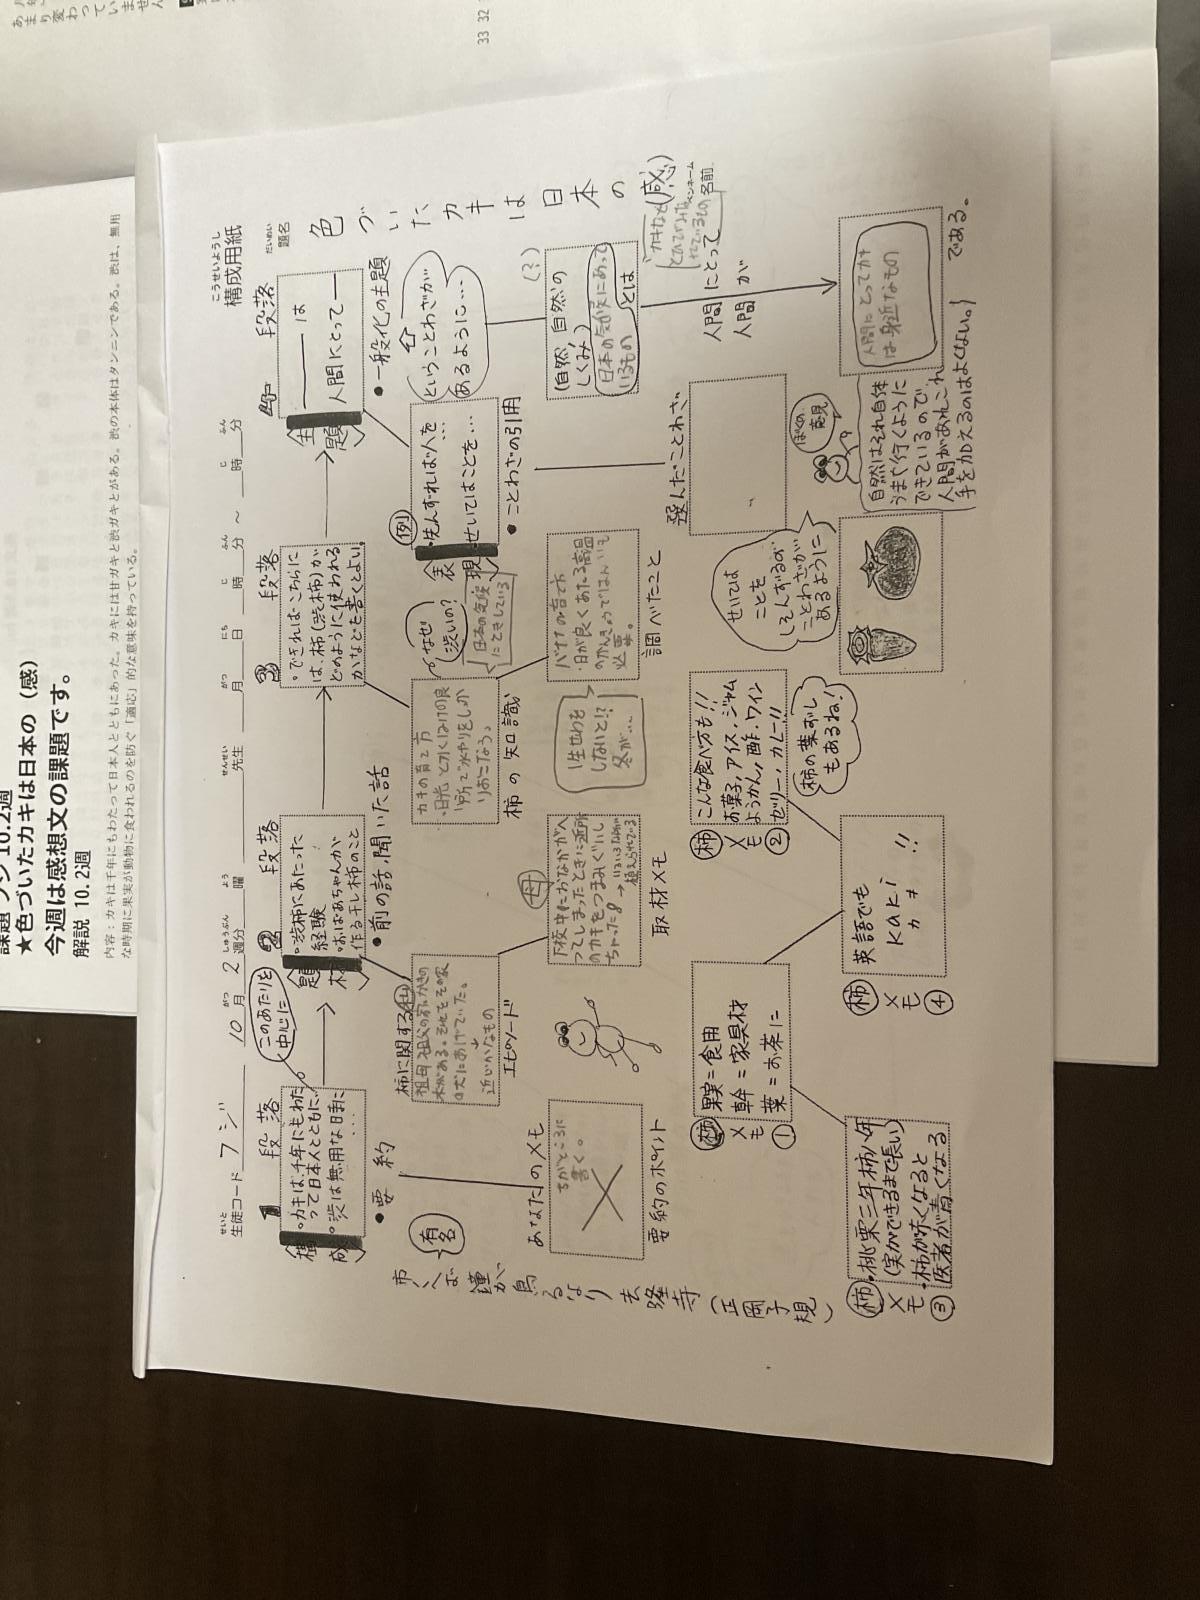 課題 フジ 10.2週
★色づいたカキは日本の（感）
今週は感想文の課題です。
解説 10.2週
内容：カキは千年にもわたって日本人とともにあった。カキには甘ガキと渋ガキとがある。渋の本体はタンニンである。渋は、無用
な時期に果実が動物に食われるのを防ぐ「適応」的な意味を持っている。
33 32
構成用紙
こうせいようし
生徒コード フジ 10月 2週分 曜 先生 月 日 時 分 ～ 時 分
題名
だいめい
色づいたカキは日本の（感）
名前
ペンネーム
1 段落
構成
・カキは、千年にもわた
って日本人とともに、
・渋は無用な時期に
…
このあたりを
中心に
●要約
あなたのメモ
ちがところに
書く。
要約のポイント
有名
2 段落
題材
・渋柿にあたった
経験
・おばあちゃんが
作る干し柿のこと
●前の話、聞いた話
柿に関する
近じかなもの
エピソード
母
下校中におなかがへ
ってしまったときに近所
のカキをつまみぐいし
ちゃった
取材メモ
3 段落
・できればこちらに
は、柿（渋柿）が
どのように使われる
かなどを書くとよい。
なぜ
渋いの？
日本の気候
にてきしている
カキの育て方
・日光と水はけの良
い所で水やりをしっか
りおこなう。
柿の知識
バナナの育て方
・日が良くあたる高温
必要。
調べたこと
1生世わを
しないと!?
冬が…
4 段落
主題
――は
人間にとって――
●一般化の主題
ということわざが
あるように…
表現
例
・先んずれば人を…
・せいてはことを…
●ことわざの引用
選んだことわざ
(？)
(自然、自然の
しくみ)
日本の気候にあって
いるもの
とは
人間にとって
人間 が
人間にとってカキ
は身近なもの
である。
ぼくの
意見
自然はそれ自体
うまく行くように
できているので
人間があれこれ
手を加えるのはよくない。
せいては
ことを
しそんずるの
ことわざが
あるように
柿メモ①
果実＝食用
幹＝家具材
葉＝お茶に
柿メモ②
こんな食べ方も!!
お菓子、アイス、ジャム
ようかん、酢、ワイン
ゼリー、カレー!!
柿の葉ずし
もあるね！
柿メモ③
・桃栗三年柿八年
(実ができるまで長い)
・柿が赤くなると
医者が青くなる
柿メモ④
英語でも
kaki
カキ
!!
(正岡子規)